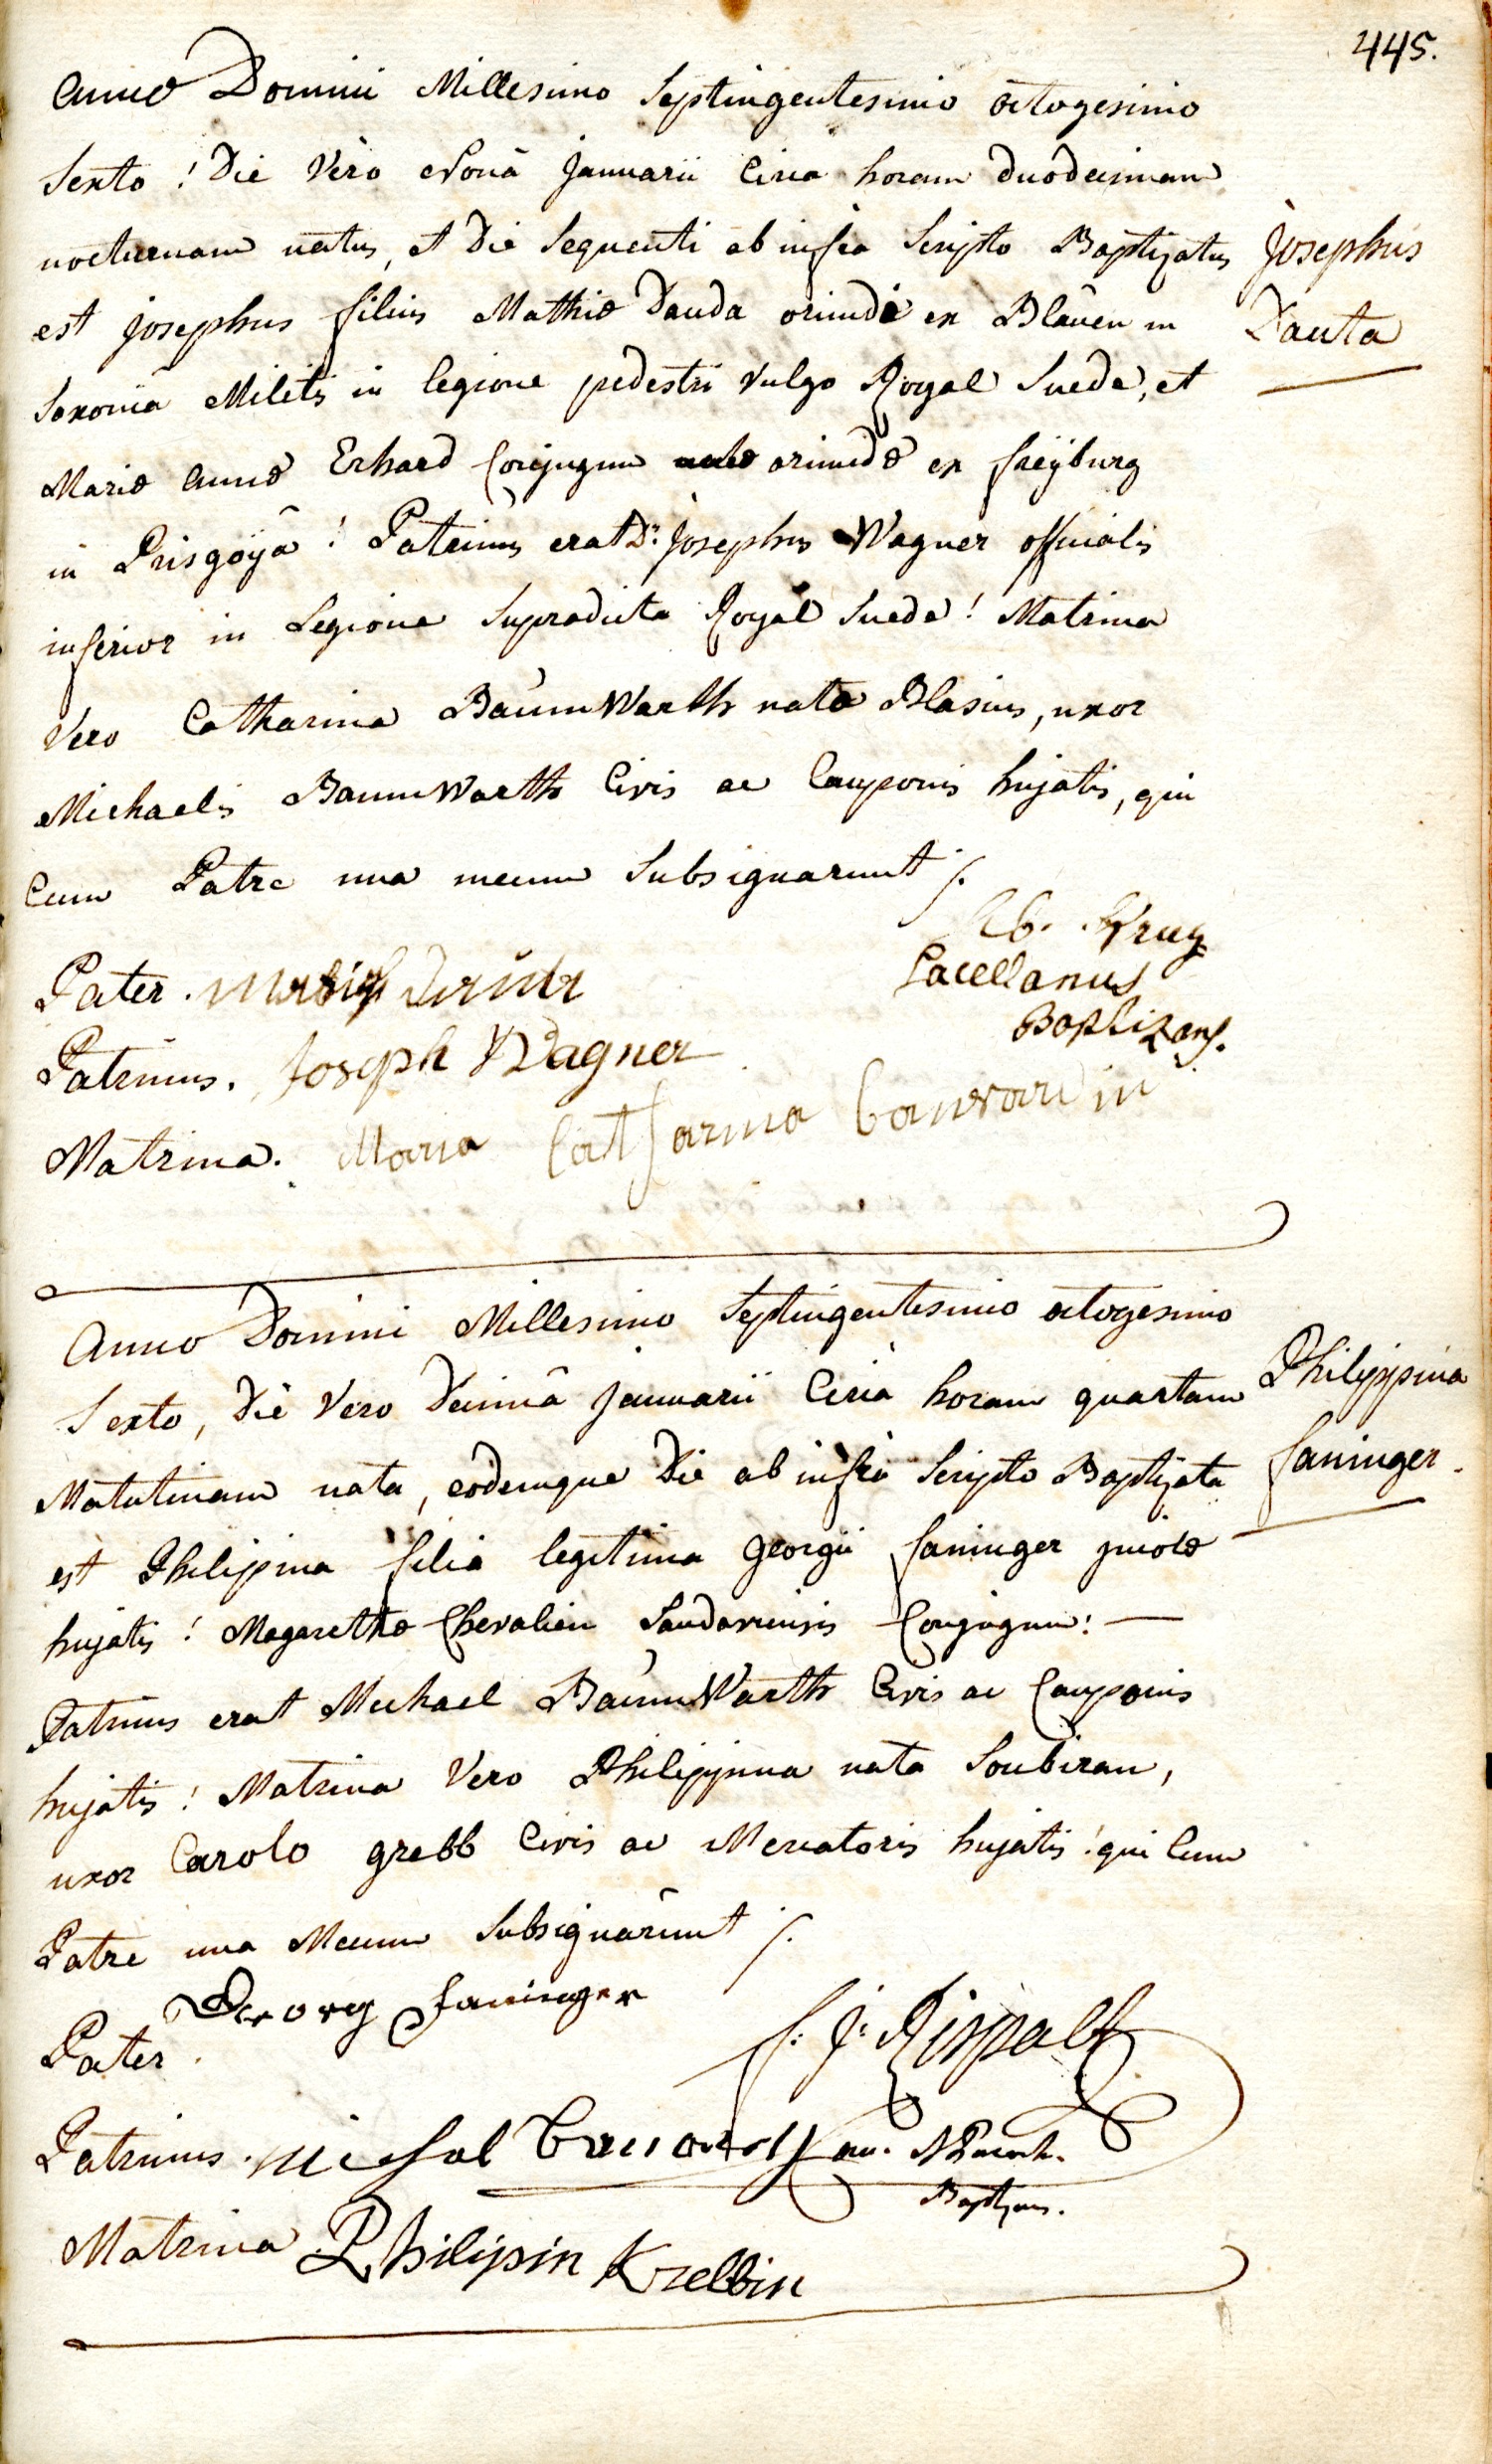 445.
Anno Domini Millesimo Septingentesimo octogesimo
Sexto! Die Vero Nonâ Januarii Circa horam duodecimam
nocturnam natus, et Die Sequenti ab infra Scripto Baptizatus
Josephus
est Josephus filius Mathiæ Dauda oriundi ex Blauen in
Dauta
Saxoniâ Militis in legione pedestri vulgo Royal Suede, et
Mariæ Annæ Erhard Conjugum oriundæ ex freyburg
in Prisgoyâ! Patrinus erat Dr: Josephus Wagner officialis
inferior in Legione Supradicta Royal Suede! Matrina
Vero Catharina BaumWarth nata Blasius, uxor
Michaelis BaumWarth Civis ac Cauponis hujatis, qui
Cum Patre una mecum Subsignarunt /.
Krug
Sacellanus
Baptizans.
Pater. Mathias
Patrinus. Joseph Wagner
Matrina. Maria Catharina Bauwardin
Anno Domini Millesimo Septingentesimo octogesimo
Sexto, Die Vero Decimâ Januarii Circa horam quartam
Philippina
Matutinam nata, eodemque Die ab infra Scripto Baptizata
faninger.
est Philippina filia legitima Georgii faninger
hujatis! Magarethæ Chevalier Landaviensis Conjugum: —
Patrinus erat Michael BaumWarth Civis ac Cauponis
hujatis! Matrina Vero Philippina nata Soubiran,
uxor Carolo grebb Civis ac Mercatoris hujatis! qui Cum
Patre una Mecum Subsignarunt /.
Georg Faninger
Pater.
Patrinus. Michel
Baptizans.
Matrina Philipin Krebbin